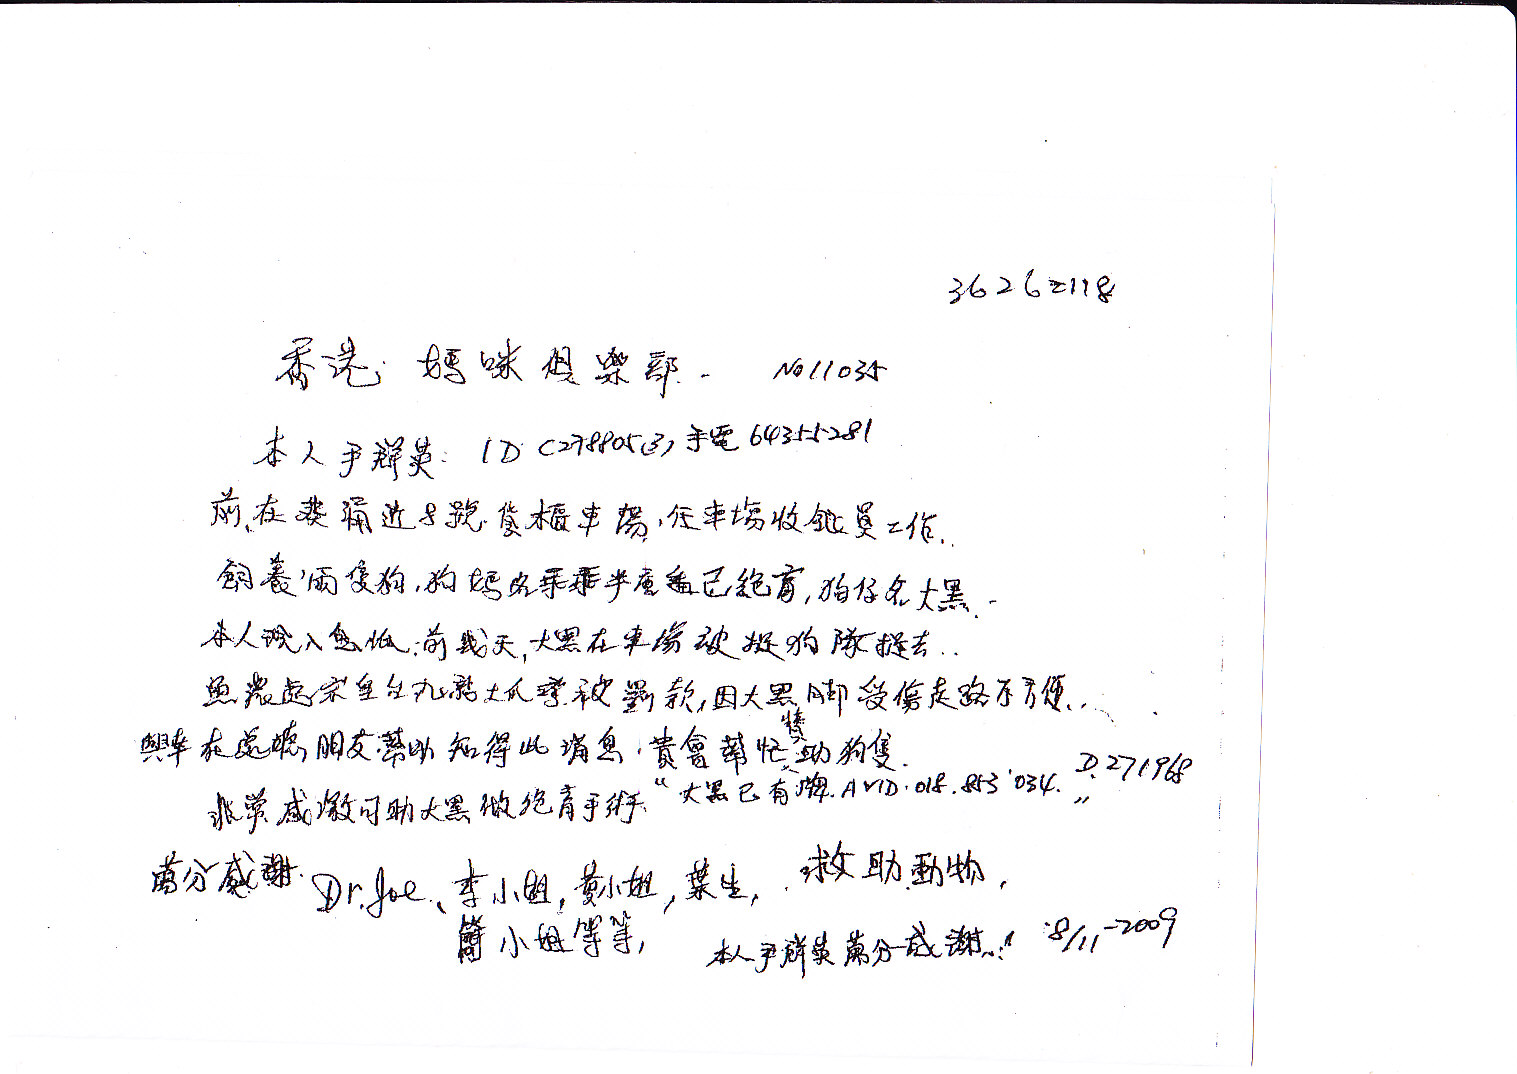 36262118
香港媽咪俱樂部. No 11035
本人尹群英: ID C278805(3), 手電 64355281
前,在葵涌近8號貨櫃車場,任車場收銀員工作..
飼養兩隻狗,狗媽名乖乖半度已絕育,狗仔名大黑.
本人現入息低,前幾天,大黑在車場被捉狗隊捉去..
漁農處 九龍土瓜灣被罰款,因大黑脚受傷走路不方便..
在處聽朋友幫助知得此消息,貴會幫忙獎助狗隻.
非常感激可助大黑做絕育手術. "大黑已有牌.AVID.018.853'034. D.271968"
萬分感謝. Dr. Joe、李小姐,黃小姐,葉生, 救助動物,
簡小姐等等,
本人尹群英萬分感謝..! 8/11-2009